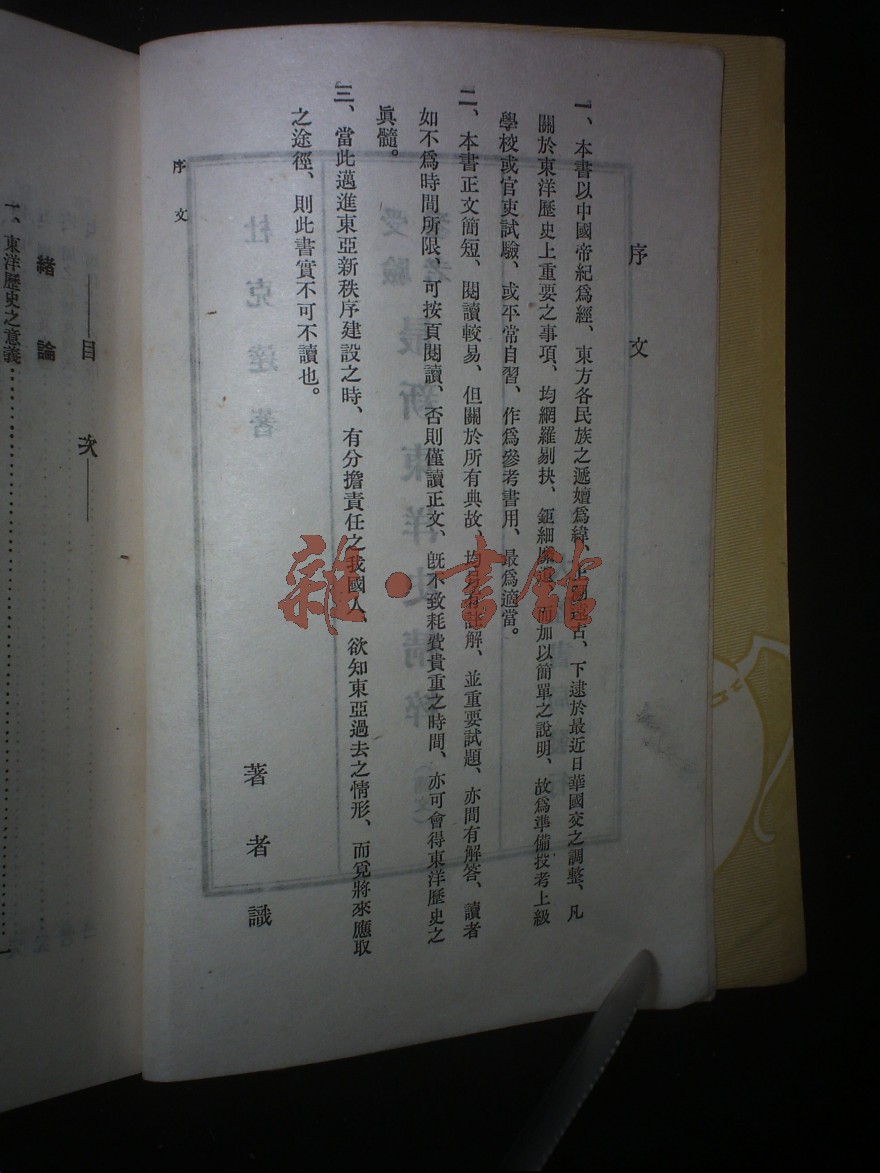 序文
一、本書以中國帝紀爲經、東方各民族之遞嬗爲緯、上溯遠古、下逮於最近日華國交之調整、凡
關於東洋歷史上重要之事項、均網羅剔抉、鉅細靡遺、而加以簡單之說明、故爲準備投考上級
學校或官吏試驗、或平常自習、作爲參考書用、最爲適當。
二、本書正文簡短、閱讀較易、但關於所有典故、均另有註解、並重要試題、亦間有解答、讀者
如不爲時間所限、可按頁閱讀、否則僅讀正文、旣不致耗費貴重之時間、亦可會得東洋歷史之
眞髓。
三、當此邁進東亞新秩序建設之時、有分擔責任之我國人、欲知東亞過去之情形、而覓將來應取
之途徑、則此書實不可不讀也。
著者識
序文
參考
受驗
最新東洋史精粹
杜克達著
雜·書館
目次
緒論
一、東洋歷史之意義